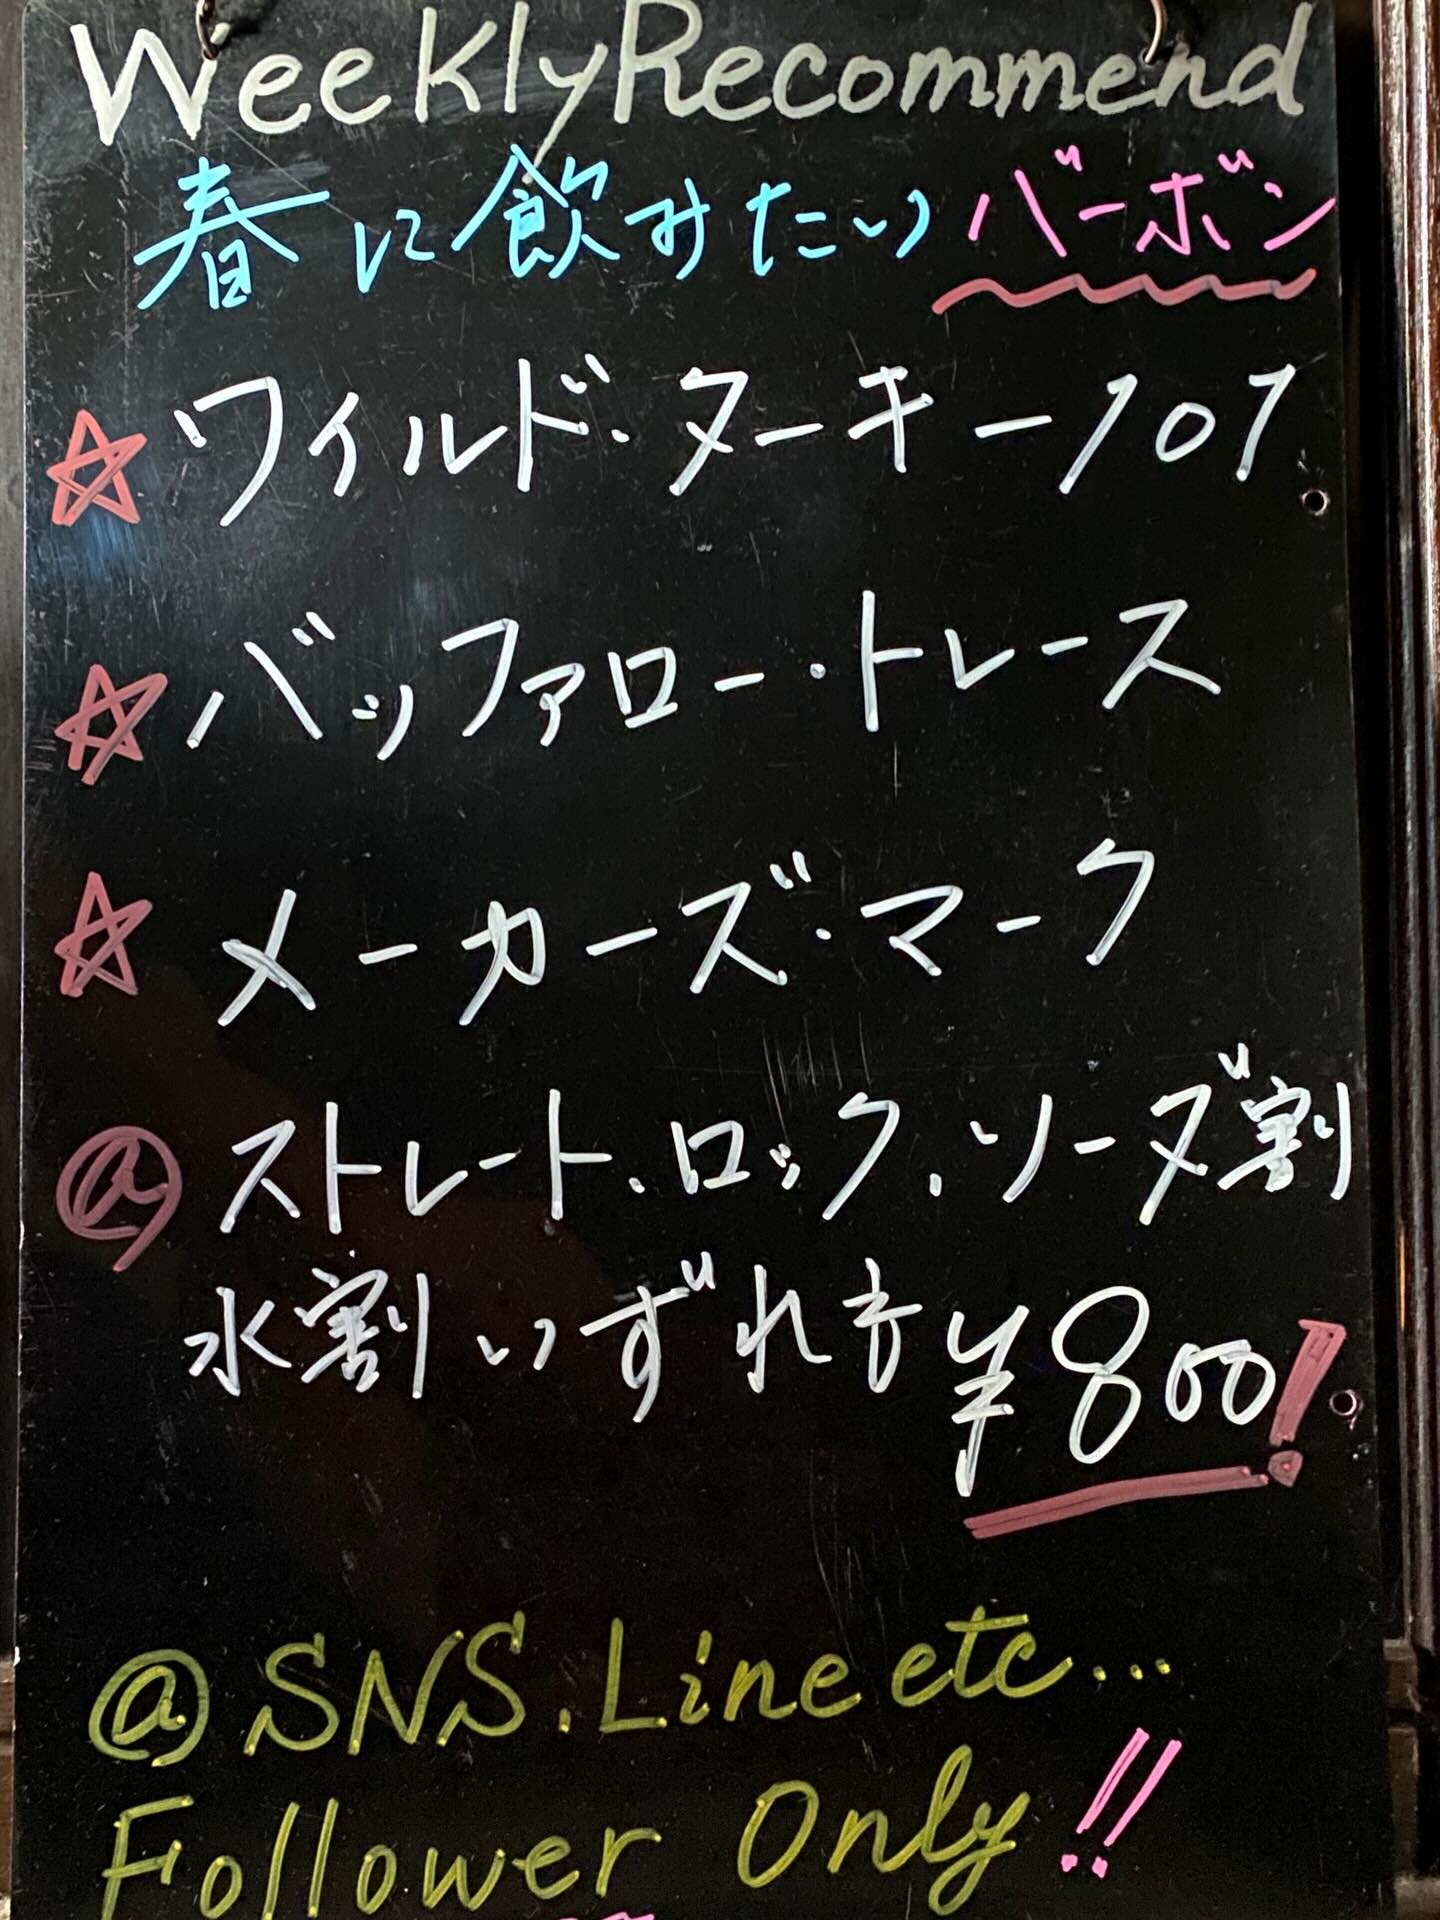 Weekly Recommend
春に飲みたいバーボン
☆ワイルド・ターキー101
☆バッファロー・トレース
☆メーカーズ・マーク
@ストレート.ロック.ソーダ割
水割いずれも¥800!
@SNS.Line etc...
Follower Only!!